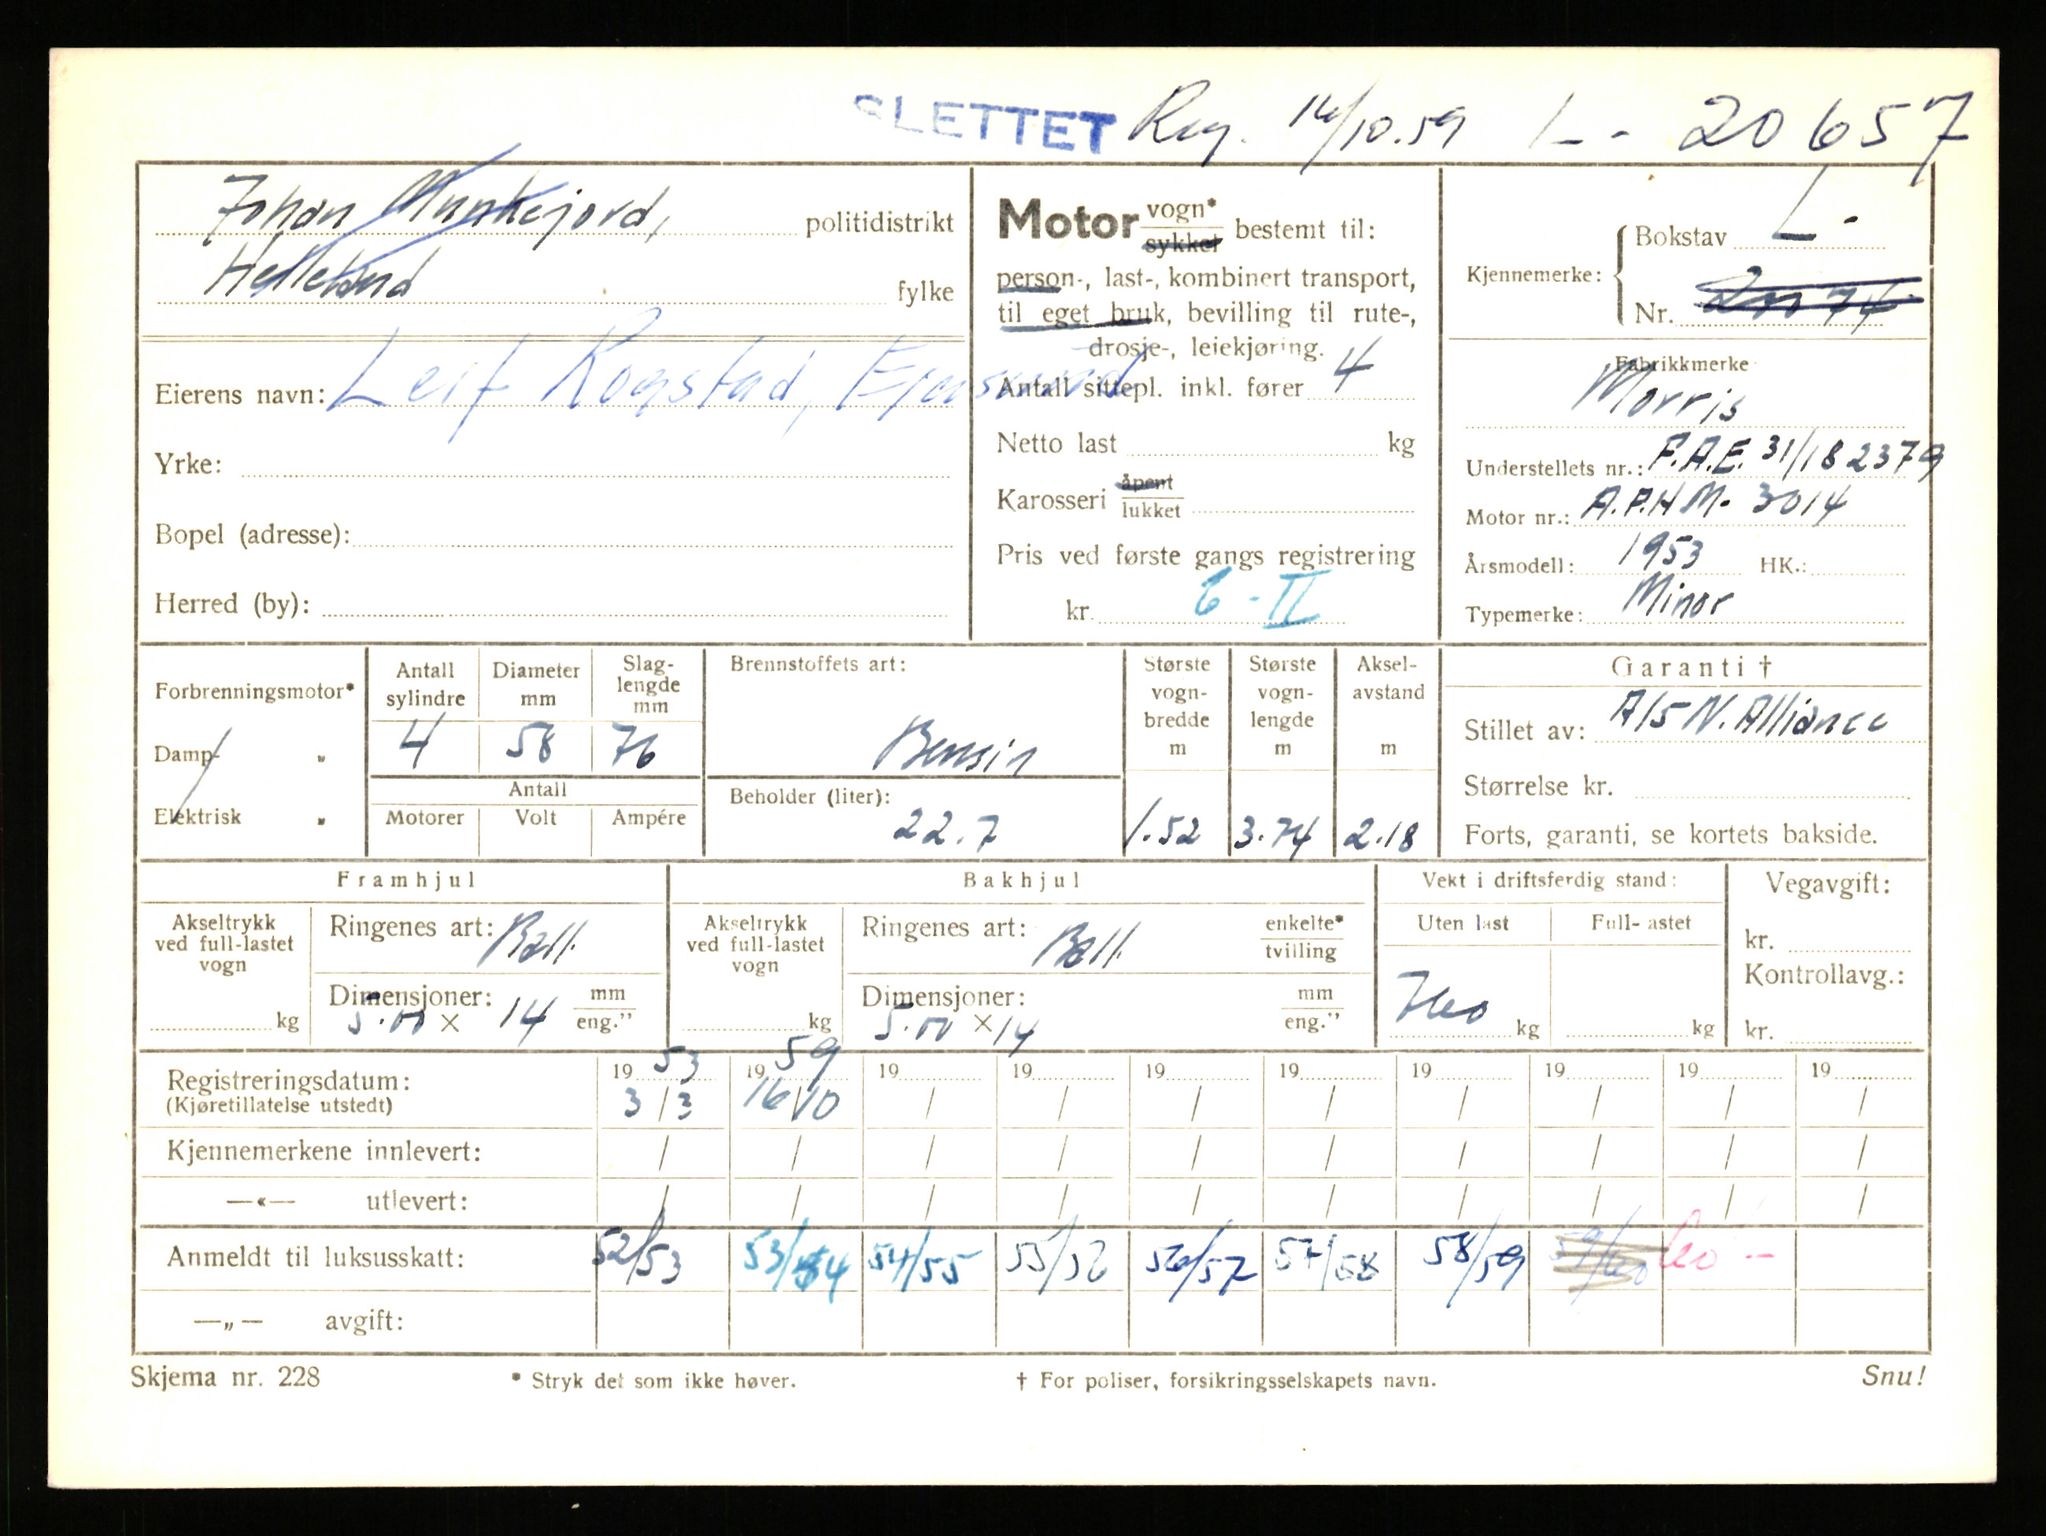 SLETTET Reg. 14/10.59 L - 20657
Johan Munkejord, politidistrikt
Helleland fylke
Eierens navn: Leif Rogstad, Egersund
Yrke:
Bopel (adresse):
Herred (by):
Motor vogn* sykkel bestemt til:
person-, last-, kombinert transport,
til eget bruk, bevilling til rute-,
drosje-, leiekjøring.
Antall sittepl. inkl. fører 4
Netto last kg
Karosseri åpent lukket
Pris ved første gangs registrering
kr. 6 - II
Kjennemerke: Bokstav L-
Nr.
Fabrikkmerke
Morris
Understellets nr.: F.A.E. 31/182379
Motor nr.: A.P.H M- 3014
Årsmodell: 1953 HK.:
Typemerke: Minor
Forbrenningsmotor*
Damp- „
Elektrisk „
Antall sylindre Diameter mm Slag-lengde mm
4 58 76
Antall
Motorer Volt Ampére
Brennstoffets art:
Bensin
Beholder (liter):
22.7
Største vogn-bredde m
1.52
Største vogn-lengde m
3.74
Aksel-avstand m
2.18
Garanti †
Stillet av: A/S N. Alliance
Størrelse kr.
Forts, garanti, se kortets bakside.
Framhjul
Akseltrykk ved full-lastet vogn
kg
Ringenes art: Ball.
Dimensjoner: mm eng."
5.00 x 14
Bakhjul
Akseltrykk ved full-lastet vogn
kg
Ringenes art: Ball. enkelte* tvilling
Dimensjoner: mm eng."
5.00 x 14
Vekt i driftsferdig stand:
Uten last Full-lastet
760 kg kg
Vegavgift:
kr.
Kontrollavg.:
kr.
Registreringsdatum: 1953 1959 19 19 19 19 19 19 19 19
(Kjøretillatelse utstedt) 3/3 16/10 / / / / / / / /
Kjennemerkene innlevert: / / / / / / / / / /
—«— utlevert: / / / / / / / / / /
Anmeldt til luksusskatt: 52/53 53/54 54/55 55/56 56/57 57/58 58/59 59/60 60 -
—„— avgift:
Skjema nr. 228 * Stryk det som ikke høver. † For poliser, forsikringsselskapets navn. Snu!